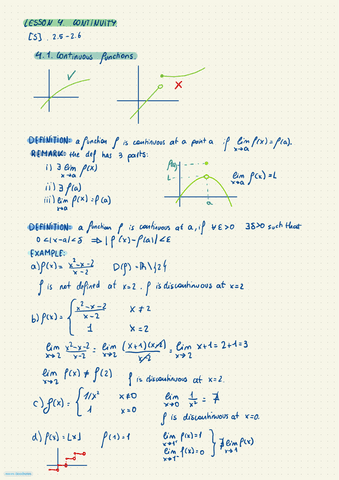 LESSON 4 CONTINUITY
[S]. 2.5-2.6
4.1. Continuous functions.
DEFINITION: a function f is continuous at a point a if lim x→a f(x) = f(a).
REMARK: the def has 3 parts:
i) ∃ lim x→a f(x)
ii) ∃ f(a)
iii) lim x→a f(x) = f(a)
f(a)
L
a
lim x→a f(x) = L
DEFINITION: a function f is continuous at a, if ∀ε>0 ∃δ>0 such that
0<|x-a|<δ ⇒ |f(x)-f(a)|<ε
EXAMPLE:
a) f(x) = x²-x-2 / x-2 D(f) = ℝ\{2}
f is not defined at x=2. f is discontinuous at x=2
b) f(x) = { x²-x-2 / x-2 x≠2
1 x=2
lim x→2 x²-x-2 / x-2 = lim x→2 (x+1)(x-2) / x-2 = lim x→2 x+1 = 2+1 = 3
lim x→2 f(x) ≠ f(2) f is discontinuous at x=2.
c) f(x) = { 1/x² x≠0 lim x→0 1/x² = ∄
1 x=0
f is discontinuous at x=0.
d) f(x) = ⌊x⌋ f(1) = 1 lim x→1⁺ f(x) = 1
lim x→1⁻ f(x) = 0 } ∄ lim x→1 f(x)